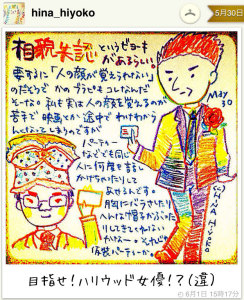 hina_hiyoko
5月30日
相貌失認というビョーキ
があるらしい。
要するに「人の顔が覚えられない」
のだとうで かのブラピもコレなんだ
そーな。私も実は人の顔を覚えるのが
苦手で 映画とか途中でわけわから
んくなってしまうのですが
パーティー
などでも同じ
人に何度も話し
かけちゃったりして
あせるんです。
胸にバラさしたり
へんな帽子かぶった
りしてきてくれない
かなー。
仮装パーティーか。
MAY
30
HINA HIYOKO
目指せ!ハリウッド女優!?(違)
6月1日 15時17分